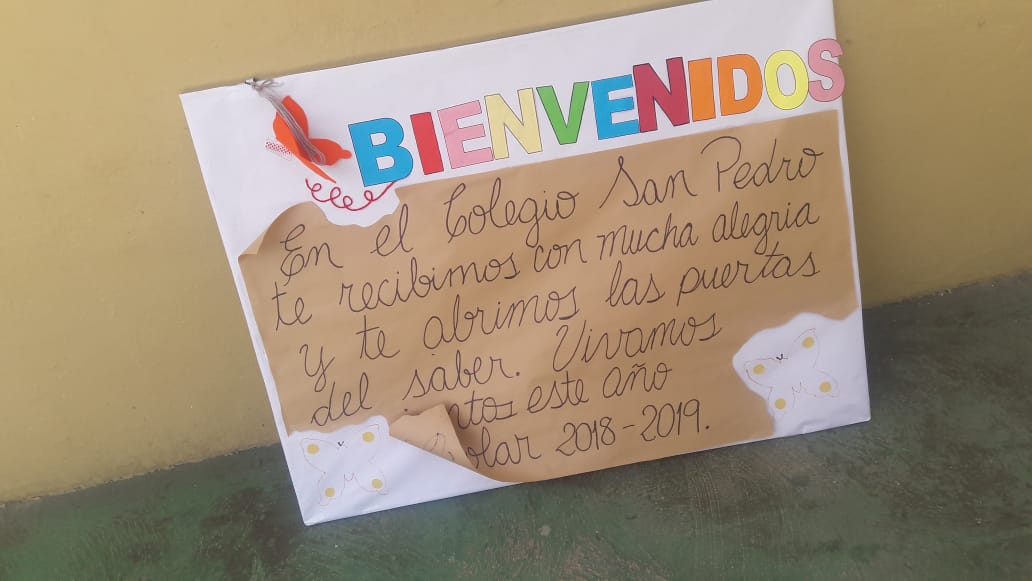 BIENVENIDOS
En el Colegio San Pedro
te recibimos con mucha alegria
y te abrimos las puertas
del saber. Vivamos
este año
2018-2019.